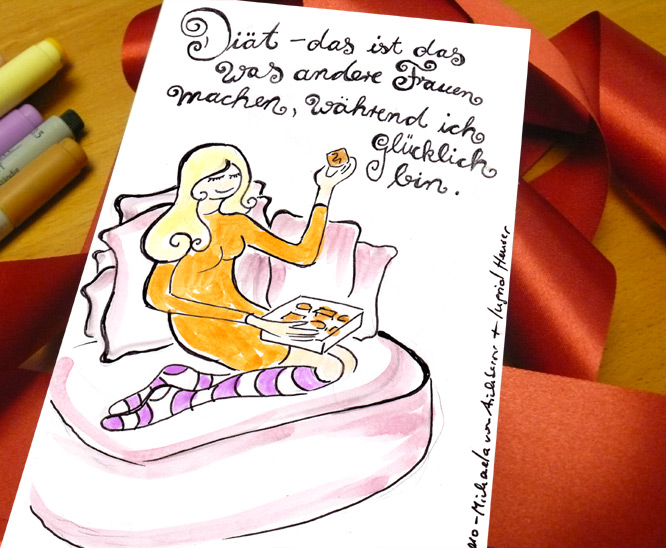 Diät - das ist das
was andere Frauen
machen, während ich
glücklich
bin.
Michaela von + Ingrid Heuser